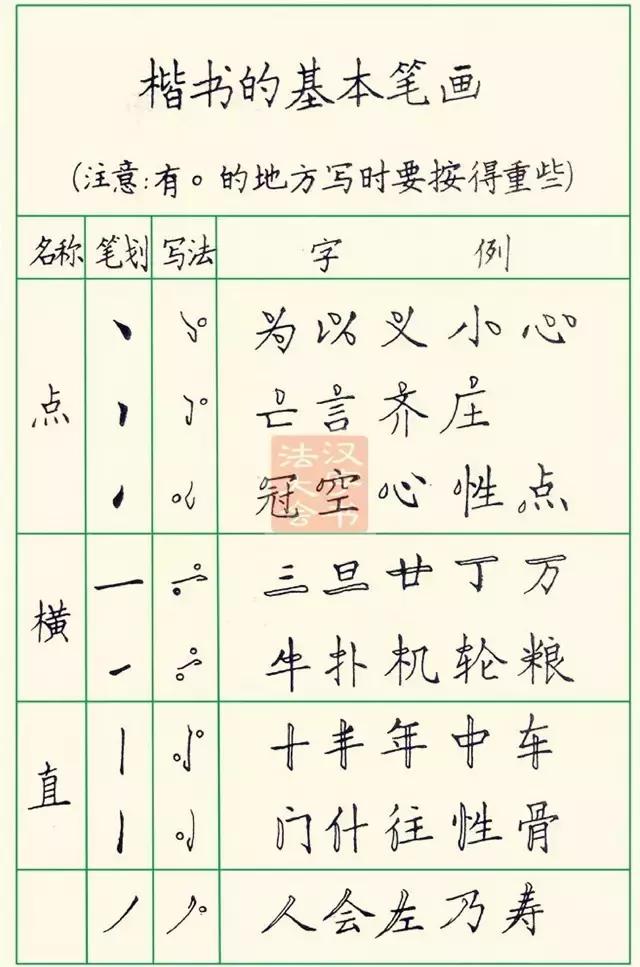 楷书的基本笔画
(注意:有。的地方写时要按得重些)
名称 笔划 写法 字 例
为以义小心
点 亡言齐庄
冠空心性点
三旦廿丁万
横
牛扑机轮粮
十半年中车
直
门什往性骨
人会左乃寿
汉字书法大会